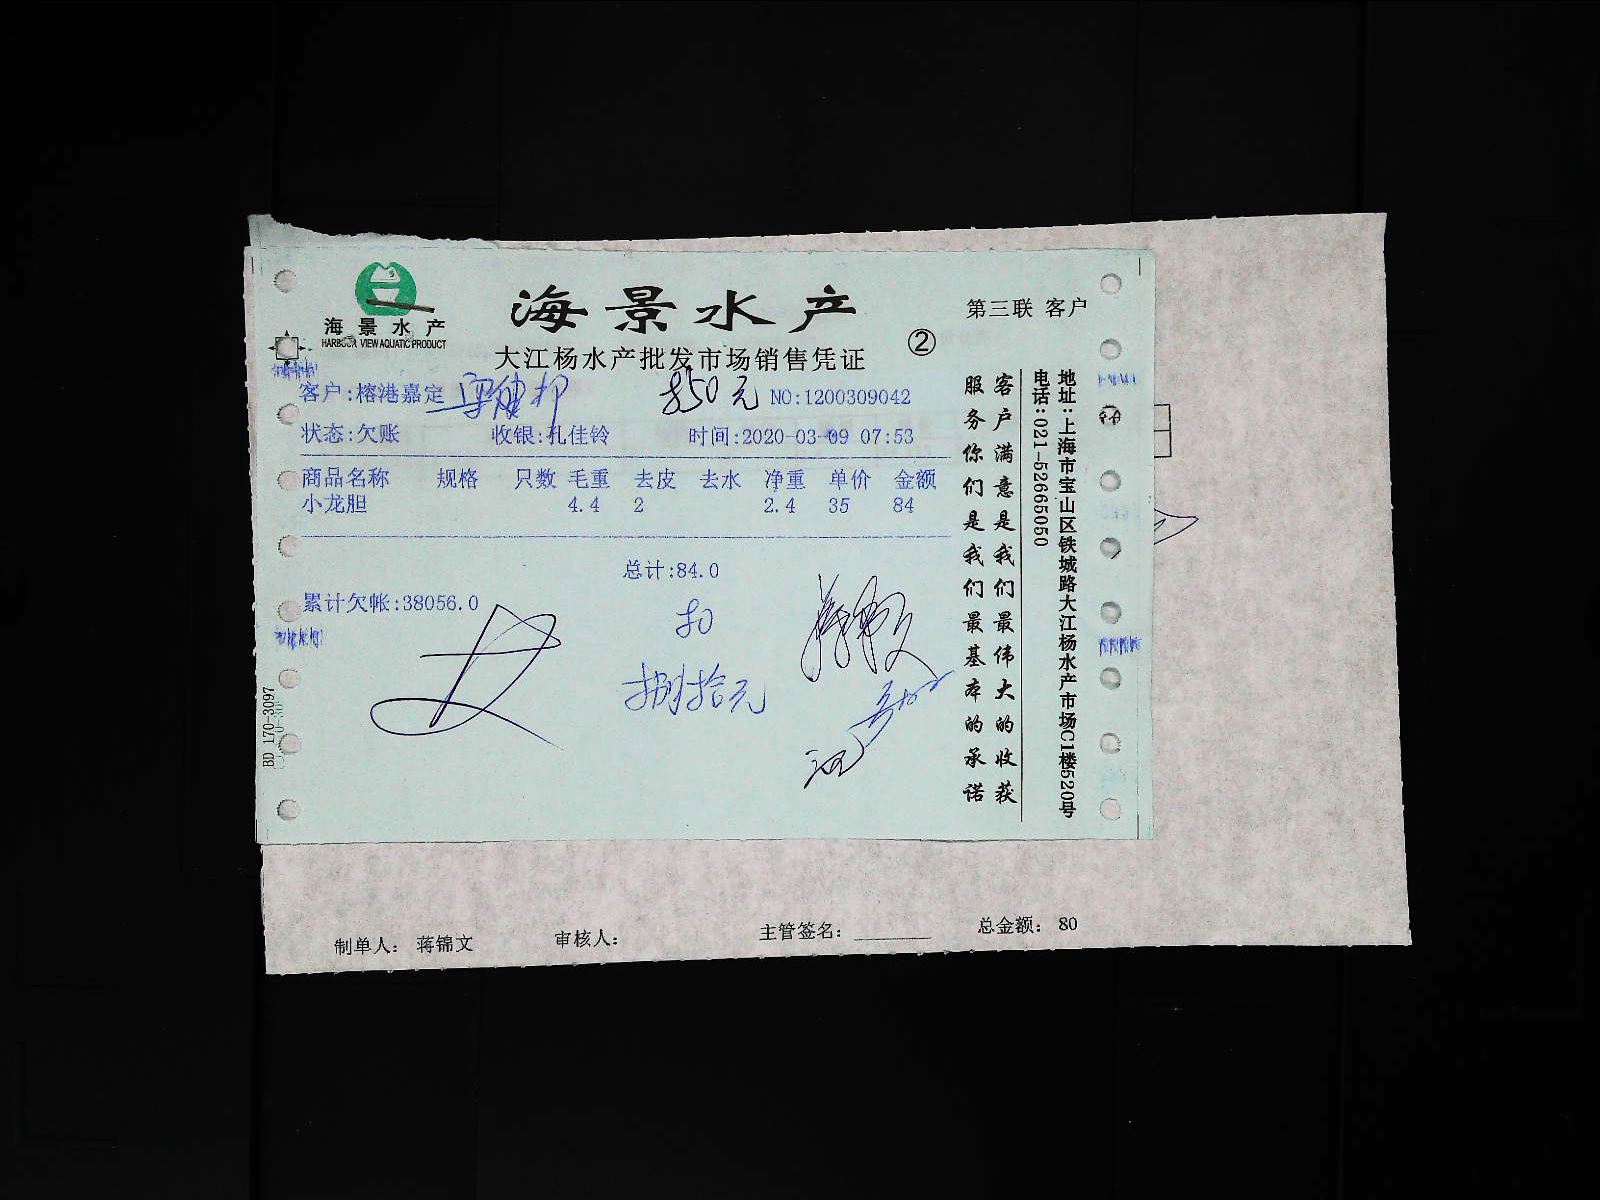 海景水产
HARBOUR VIEW AQUATIC PRODUCT
海景水产
第三联 客户
大江杨水产批发市场销售凭证
②
客户:榕港嘉定
NO:1200309042
状态:欠账 收银:孔佳铃 时间:2020-03-09 07:53
商品名称 规格 只数 毛重 去皮 去水 净重 单价 金额
小龙胆 4.4 2 2.4 35 84
总计:84.0
累计欠帐:38056.0
捌拾元
客户满意是我们最伟大的收获
服务你们是我们最基本的承诺
地址:上海市宝山区铁城路大江杨水产市场C1楼520号
电话:021-52665050
BD 170-3097
制单人: 蒋锦文 审核人: 主管签名: 总金额: 80